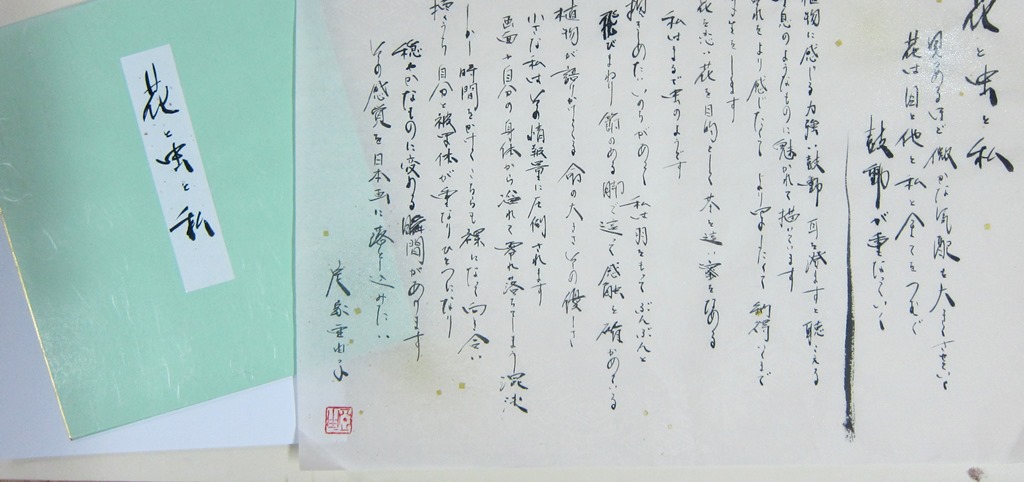 花と虫と私
見つめるほど微かな気配も大きくさせていく
花は目と他と私と全てをつないで
鼓動が重なっていく
植物に感じる力強い鼓動 耳を澄ますと聴こえる
息のようなものに魅かれて描いています
それをより感じたくて より写したくて 納得いくまで
をします
花を思い花を目的として 茎を這い 蜜をなめる
私はまるで虫のようです
めたいいのちがあって 私は羽をもって ぶんぶんと
飛びまわり 節のある脚で這って 感触を確かめている
植物が語りかけてくる 命の大きさ いのちの優しさ
小さな私はいつも情報量に圧倒されます
画面や自分の身体から溢れて零れ落ちてしまう混沌
しかし時間をかけて こちらも裸になって向き合い
描くうち 自分と被写体が重なりひとつになり
穏やかなものに変わる瞬間があります
その感覚を日本画に落とし込みたい
花と虫と私